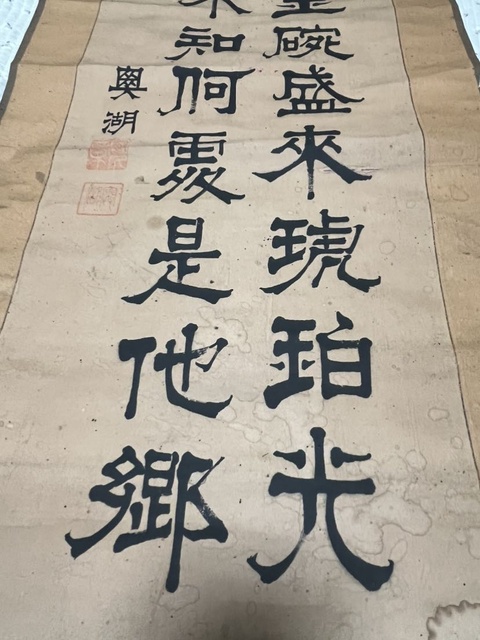 碗盛來琥珀光
知何處是他鄉
奧湖